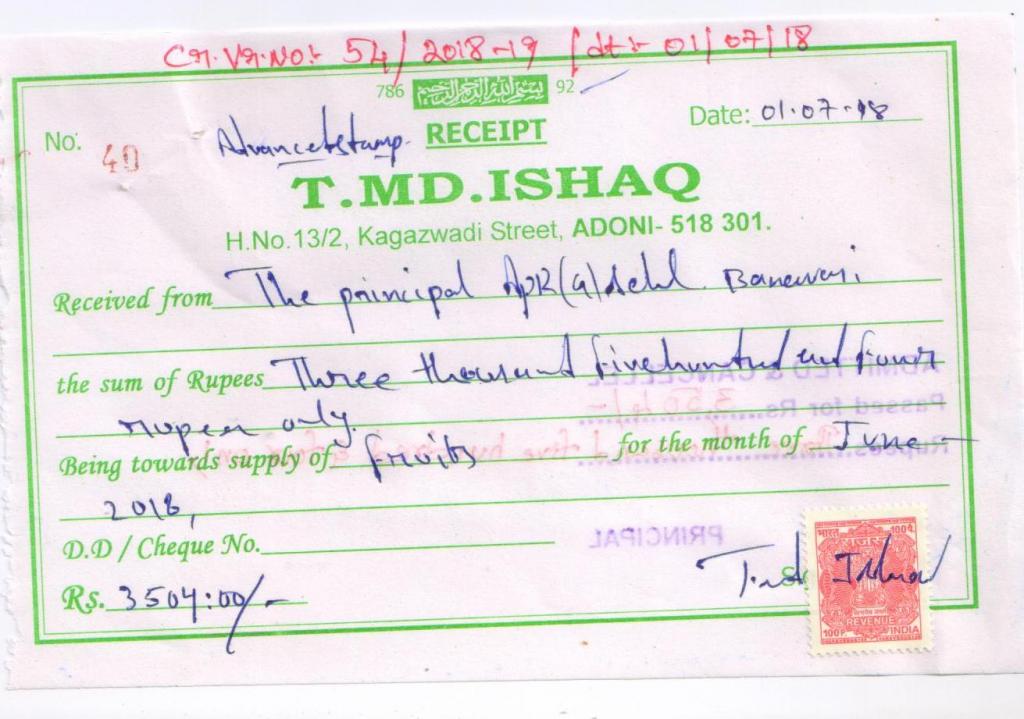 Cr. Vr. No:- 54/2018-19 / dt:- 01/07/18
786 بسم الله الرحمن الرحيم 92
No: 40 Advancedstamp. RECEIPT Date: 01-07-18
T.MD.ISHAQ
H.No.13/2, Kagazwadi Street, ADONI- 518 301.
Received from The principal APR(G) Banavasi.
the sum of Rupees Three thousand five hundred and four
rupees only.
Being towards supply of fruits for the month of June -
2018,
D.D / Cheque No.
Rs. 3504:00/-
ADMITTED & CANCELLED
Passed for Rs. 3504/-
Rupees
PRINCIPAL
भारत 100P
REVENUE
100P INDIA